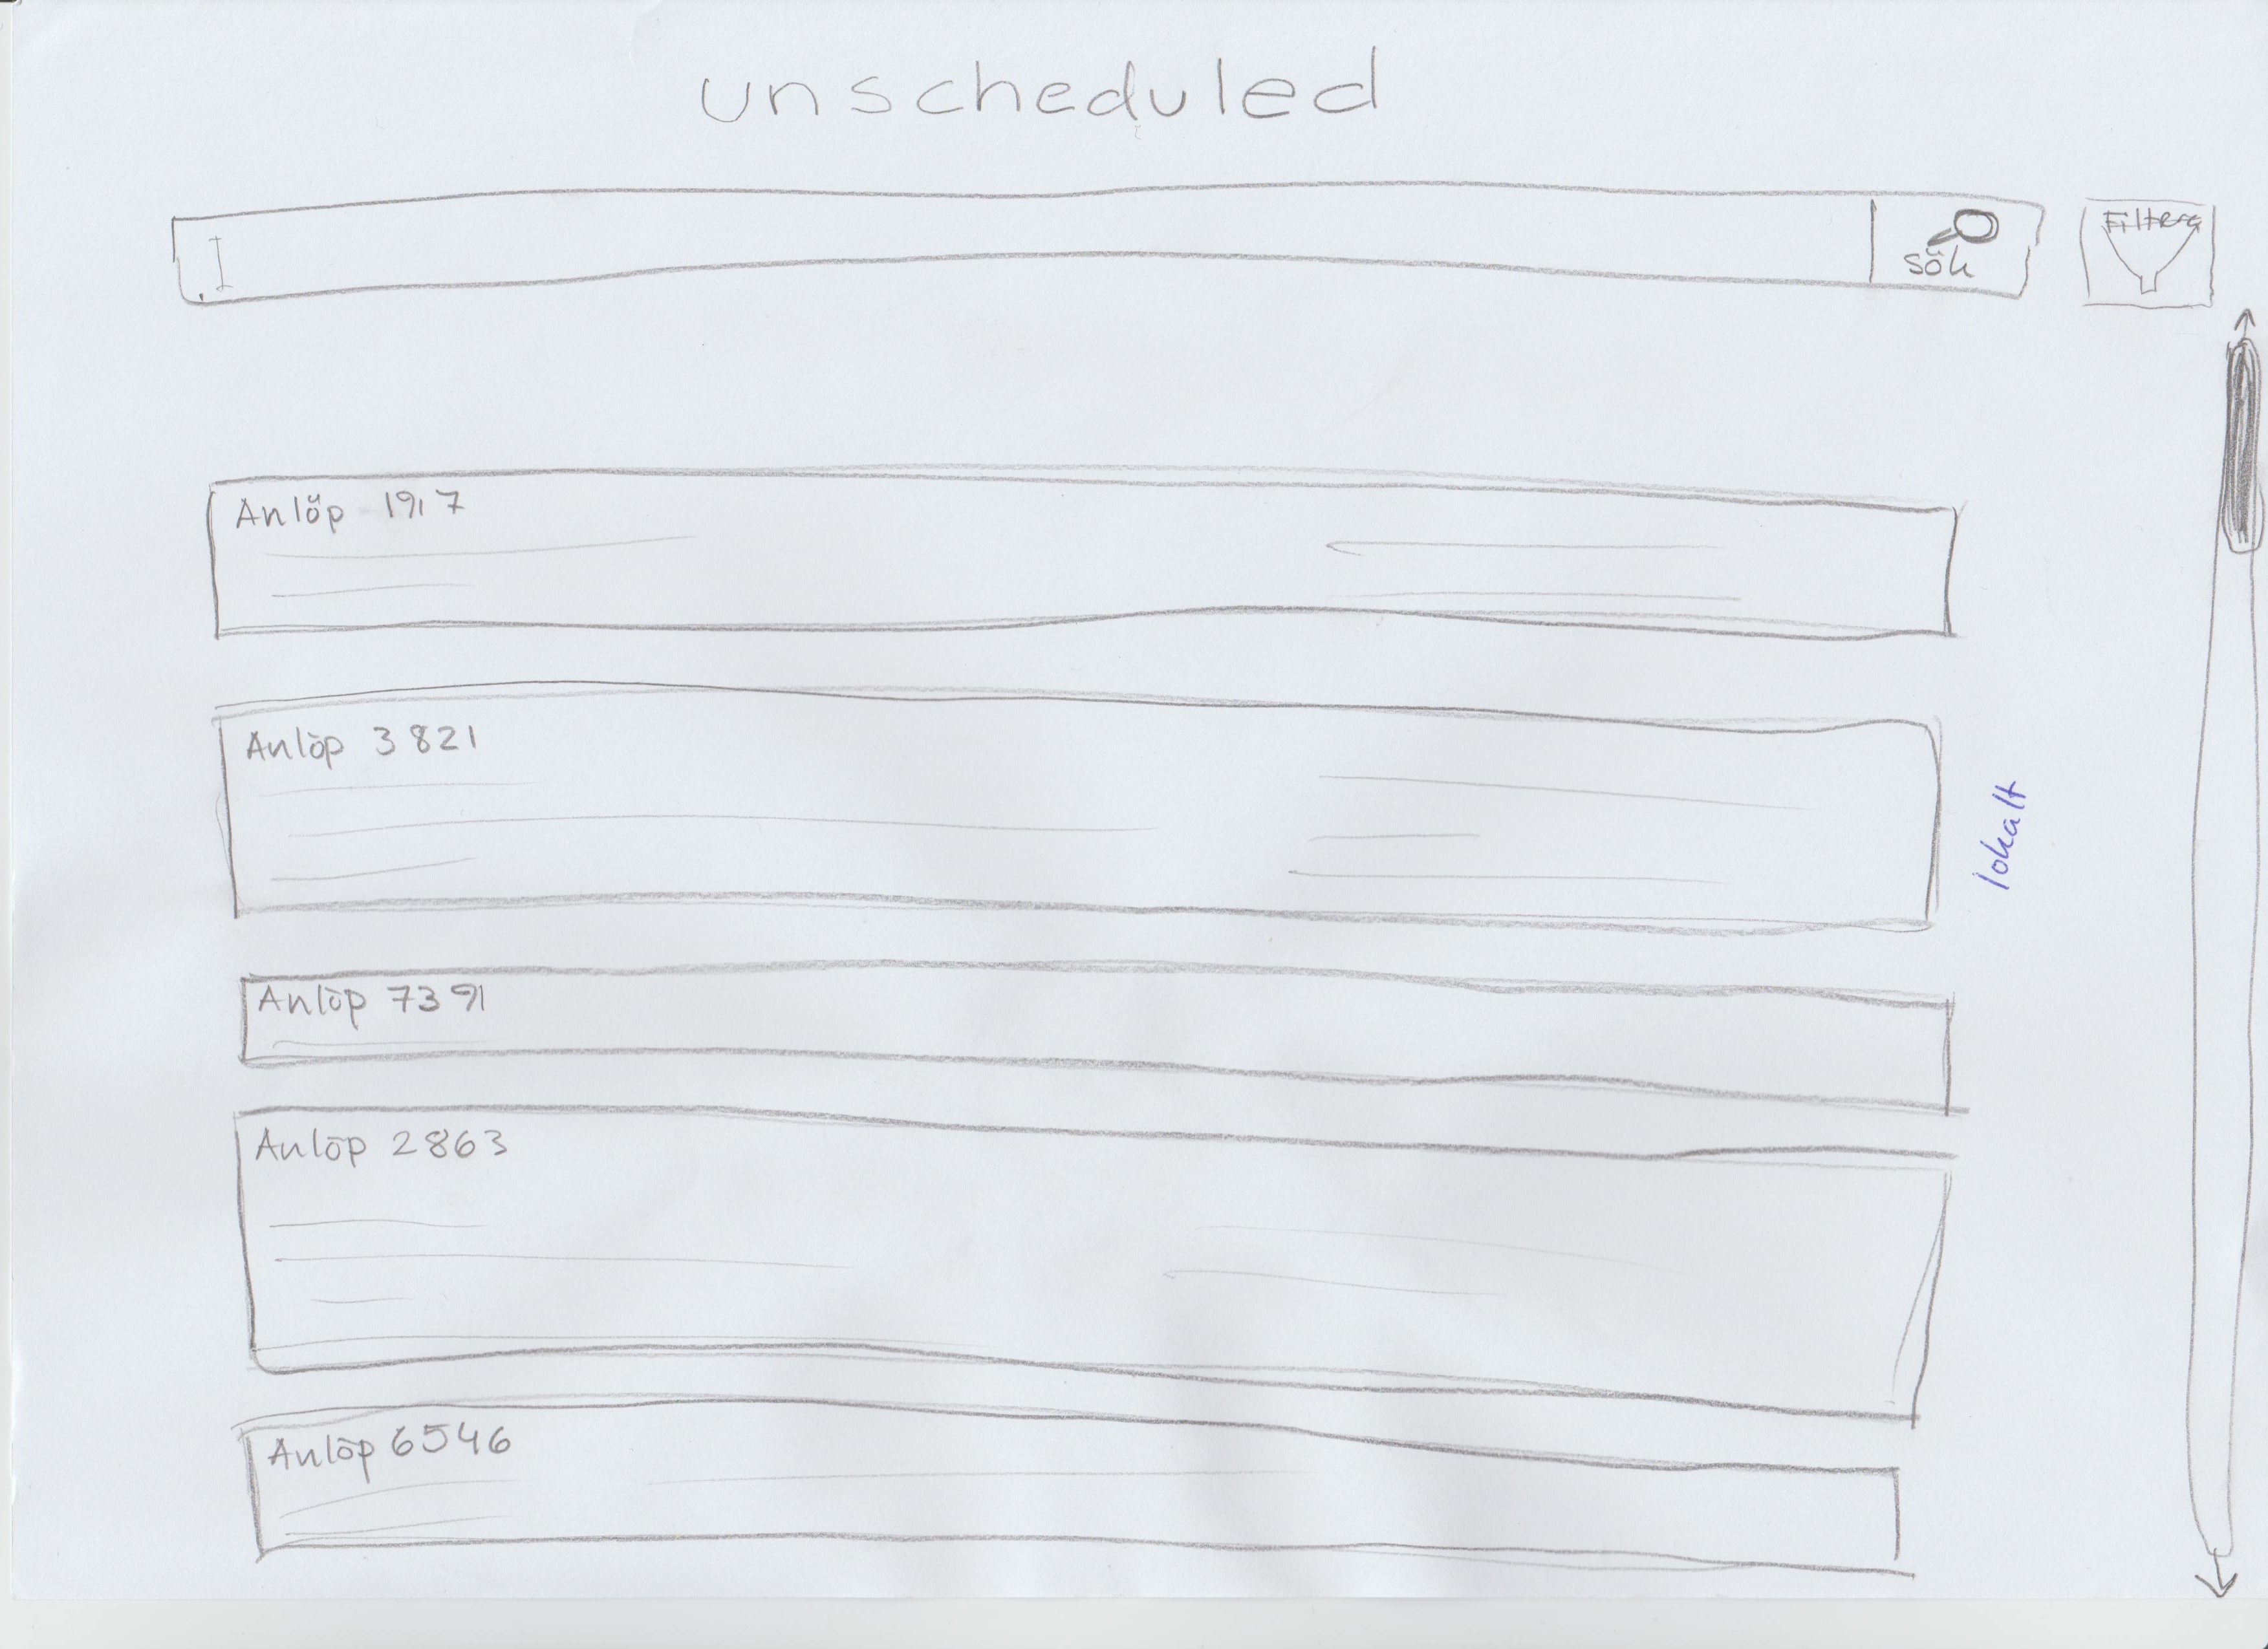 unscheduled
sök
Filtera
Anlöp 1917
Anlöp 3821
lokalt
Anlöp 7391
Anlöp 2863
Anlöp 6546